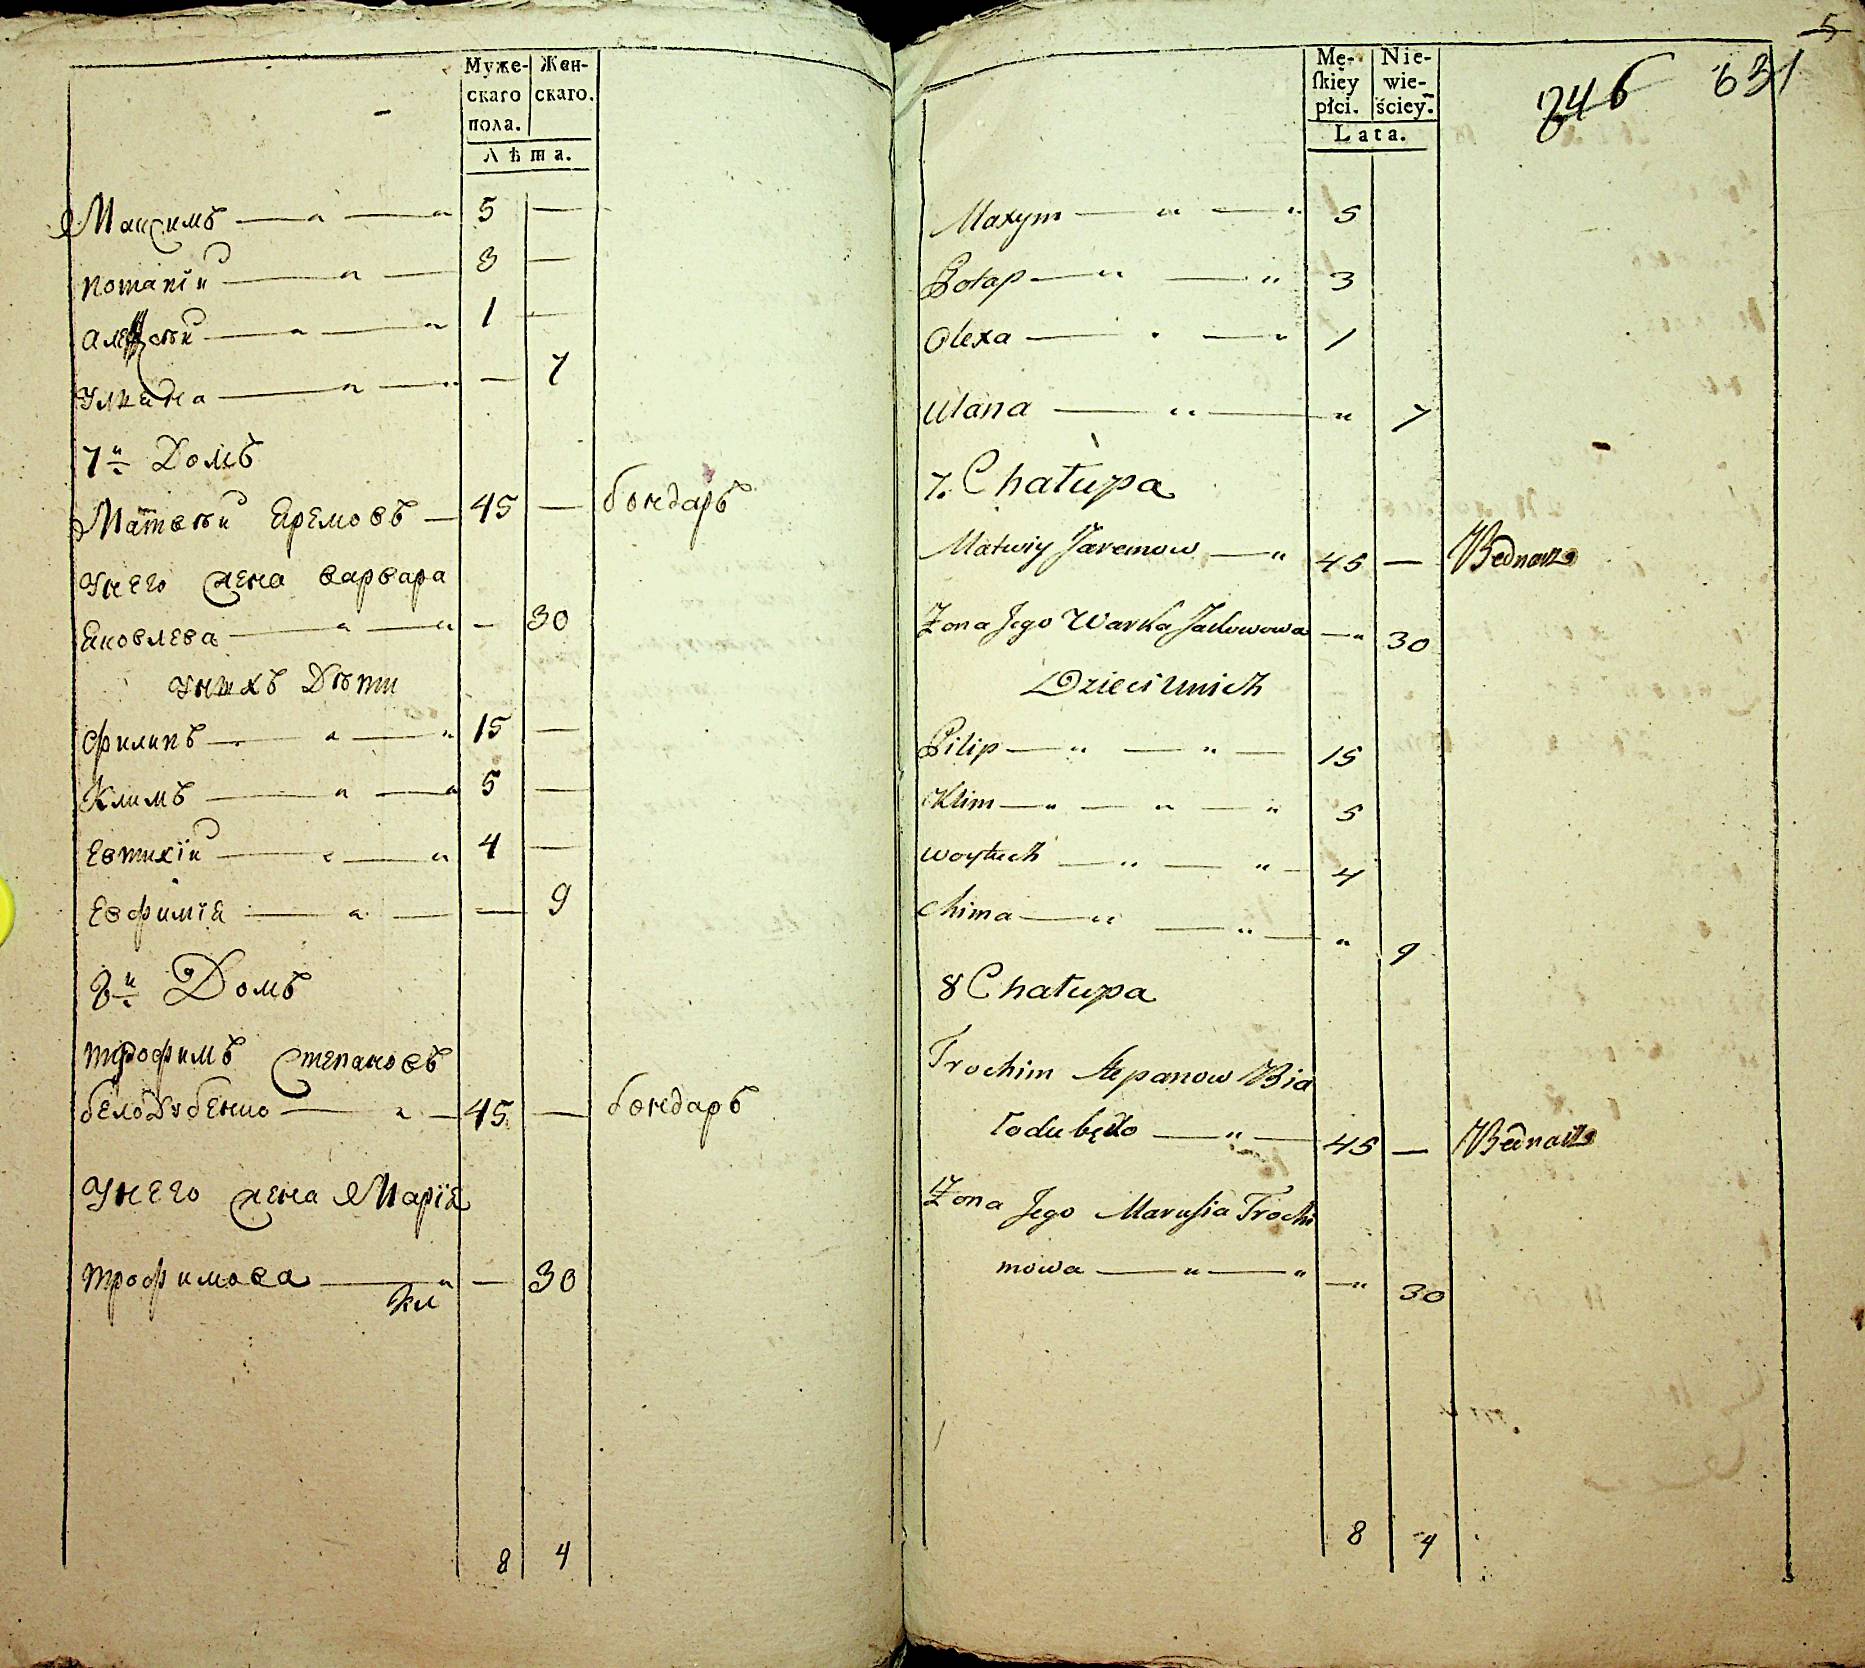 Муже- Жен-
скаго скаго.
пола.
Лѣта.
Максимъ 5 —
Потапїй 3 —
Алексѣй 1 —
Улияна — 7
7й Домъ
Матвѣй Яремовъ 45 — бондаръ
Унего жена варвара
Яковлева — 30
Унихъ Дѣти
Филипъ 15 —
Климъ 5 —
Евтихїй 4 —
Евфимїя — 9
8й Домъ
Трофимъ Степановъ
белодубенко 45 — бондаръ
Унего жена Марїя
Трофимова — 30
8 4
5
246 631
Mę- Nie-
ſkiey wie-
płci. ściey.
Lata.
Maxym 5
Potap 3
Olexa 1
Ulana " 7
7. Chałupa
Matwiy Jaremow 45 — Bednarz
Żona Jego Warka Jackowowa — 30
Dzieci unich
Pilip 15
Klim 5
Woytuch 4
Chima " 9
8 Chałupa
Trochim Stepanow Bia
łodubęko 45 — Bednarz
Żona Jego Marusia Trochi
mowa — 30
8 4